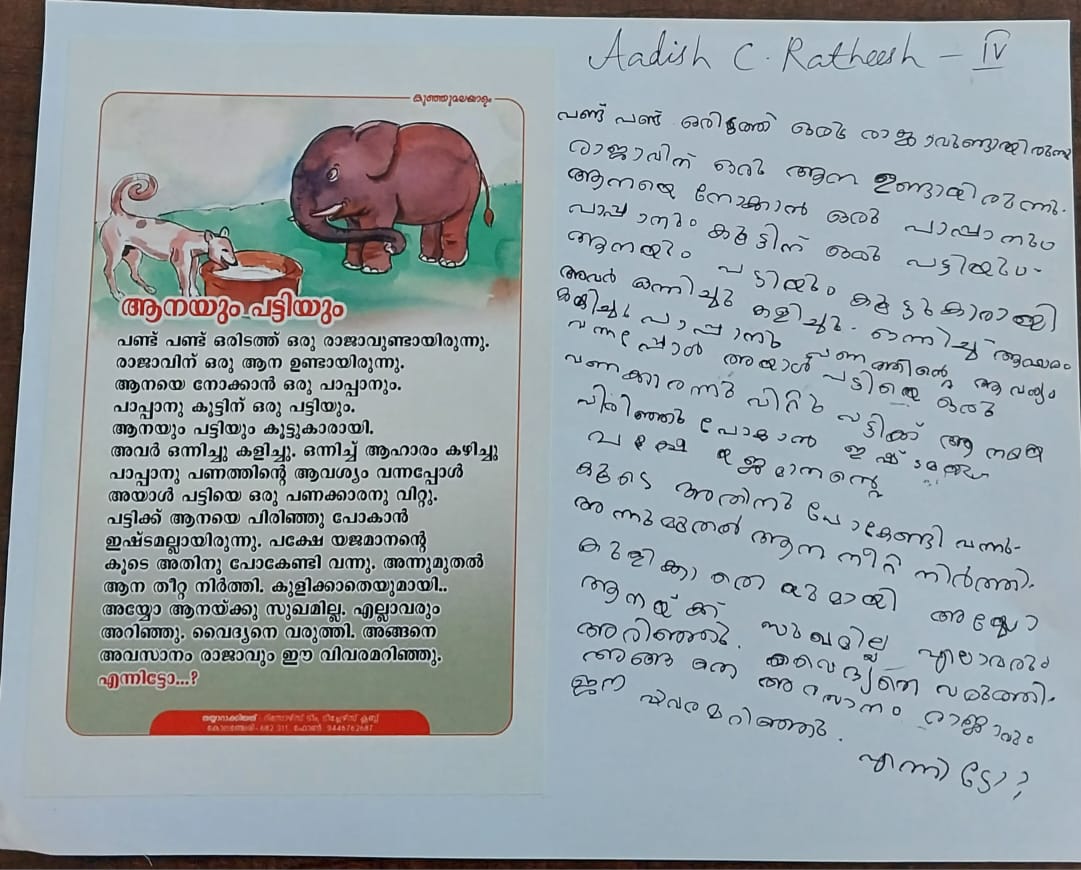 കുഞ്ഞുമലയാളം
ആനയും പട്ടിയും
പണ്ട് പണ്ട് ഒരിടത്ത് ഒരു രാജാവുണ്ടായിരുന്നു.
രാജാവിന് ഒരു ആന ഉണ്ടായിരുന്നു.
ആനയെ നോക്കാൻ ഒരു പാപ്പാനും.
പാപ്പാനു കൂട്ടിന് ഒരു പട്ടിയും.
ആനയും പട്ടിയും കൂട്ടുകാരായി.
അവർ ഒന്നിച്ചു കളിച്ചു. ഒന്നിച്ച് ആഹാരം കഴിച്ചു
പാപ്പാനു പണത്തിന്റെ ആവശ്യം വന്നപ്പോൾ
അയാൾ പട്ടിയെ ഒരു പണക്കാരനു വിറ്റു.
പട്ടിക്ക് ആനയെ പിരിഞ്ഞു പോകാൻ
ഇഷ്ടമല്ലായിരുന്നു. പക്ഷേ യജമാനന്റെ
കൂടെ അതിനു പോകേണ്ടി വന്നു. അന്നുമുതൽ
ആന തീറ്റ നിർത്തി. കുളിക്കാതെയുമായി..
അയ്യോ ആനയ്ക്കു സുഖമില്ല. എല്ലാവരും
അറിഞ്ഞു. വൈദ്യനെ വരുത്തി. അങ്ങനെ
അവസാനം രാജാവും ഈ വിവരമറിഞ്ഞു.
എന്നിട്ടോ...?
തയ്യാറാക്കിയത് : റിസോഴ്സ് ടീം, ടീച്ചേഴ്സ് ക്ലബ്ബ്
കോലഞ്ചേരി - 682 311, ഫോൺ 9446762687
Aadish C. Ratheesh - IV
പണ്ട് പണ്ട് ഒരിടത്ത് ഒരു രാജാവുണ്ടായിരുന്നു
രാജാവിന് ഒരു ആന ഉണ്ടായിരുന്നു.
ആനയെ നോക്കാൻ ഒരു പാപ്പാനും
പാപ്പാനും കൂട്ടിന് ഒരു പട്ടിയും.
ആനയും പട്ടിയും കൂട്ടുകാരായി
അവർ ഒന്നിച്ചു കളിച്ചു. ഒന്നിച്ച് ആഹാരം
കഴിച്ചു പാപ്പാനു പണത്തിന്റെ ആവശ്യം
വന്നപ്പോൾ അയാൾ പട്ടിയെ ഒരു
പണക്കാരനു വിറ്റു പട്ടിക്ക് ആനയെ
പിരിഞ്ഞു പോകാൻ
പക്ഷേ യജമാനന്റെ
കൂടെ അതിനു പോകേണ്ടി വന്നു.
അന്നുമുതൽ ആന തീറ്റ നിർത്തി.
കുളിക്കാതെയുമായി അയ്യോ
ആനയ്ക്ക് സുഖമില്ല എലാവരും
അറിഞ്ഞു. വൈദ്യനെ വരുത്തി.
അങ്ങനെ അവസാനം രാജാവും
വിവരമറിഞ്ഞു.
എന്നിട്ടോ?